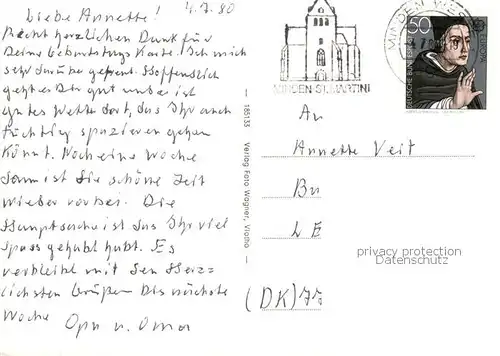 4.7.80
Liebe Annette!
Recht herzlichen Dank für
Deine Geburtstags Karte. Hab mich
sehr darüber gefreut. Hoffentlich
geht es Dir gut und es ist
gutes Wetter dort, das Ihr auch
tüchtig spazieren gehen
könnt. Noch eine Woche
dann ist die schöne Zeit
wieder vorbei. Die
Hauptsache ist das Ihr viel
Spass gehabt habt. Es
verbleibt mit den Herz=
lichsten Grüßen bis nächste
Woche Opa u. Oma
165133 Verlag Foto Wagner, Vlotho
MINDEN-ST. MARTINI
MINDEN WESTF
50
DEUTSCHE BUNDESPOST
EUROPA
An
Annette Veit
LE
(DK)
privacy protection
Datenschutz